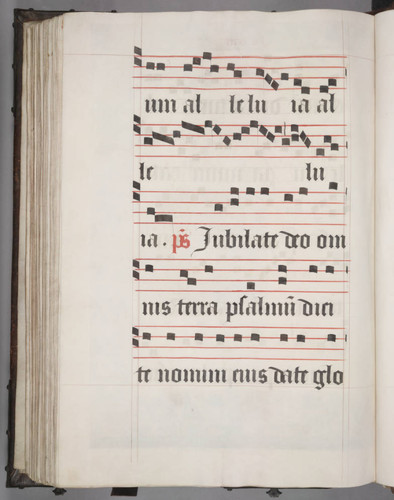 um al le lu ia al
le lu
ia. ps Jubilate deo om
nis terra psalmū dici
te nomini eius date glo